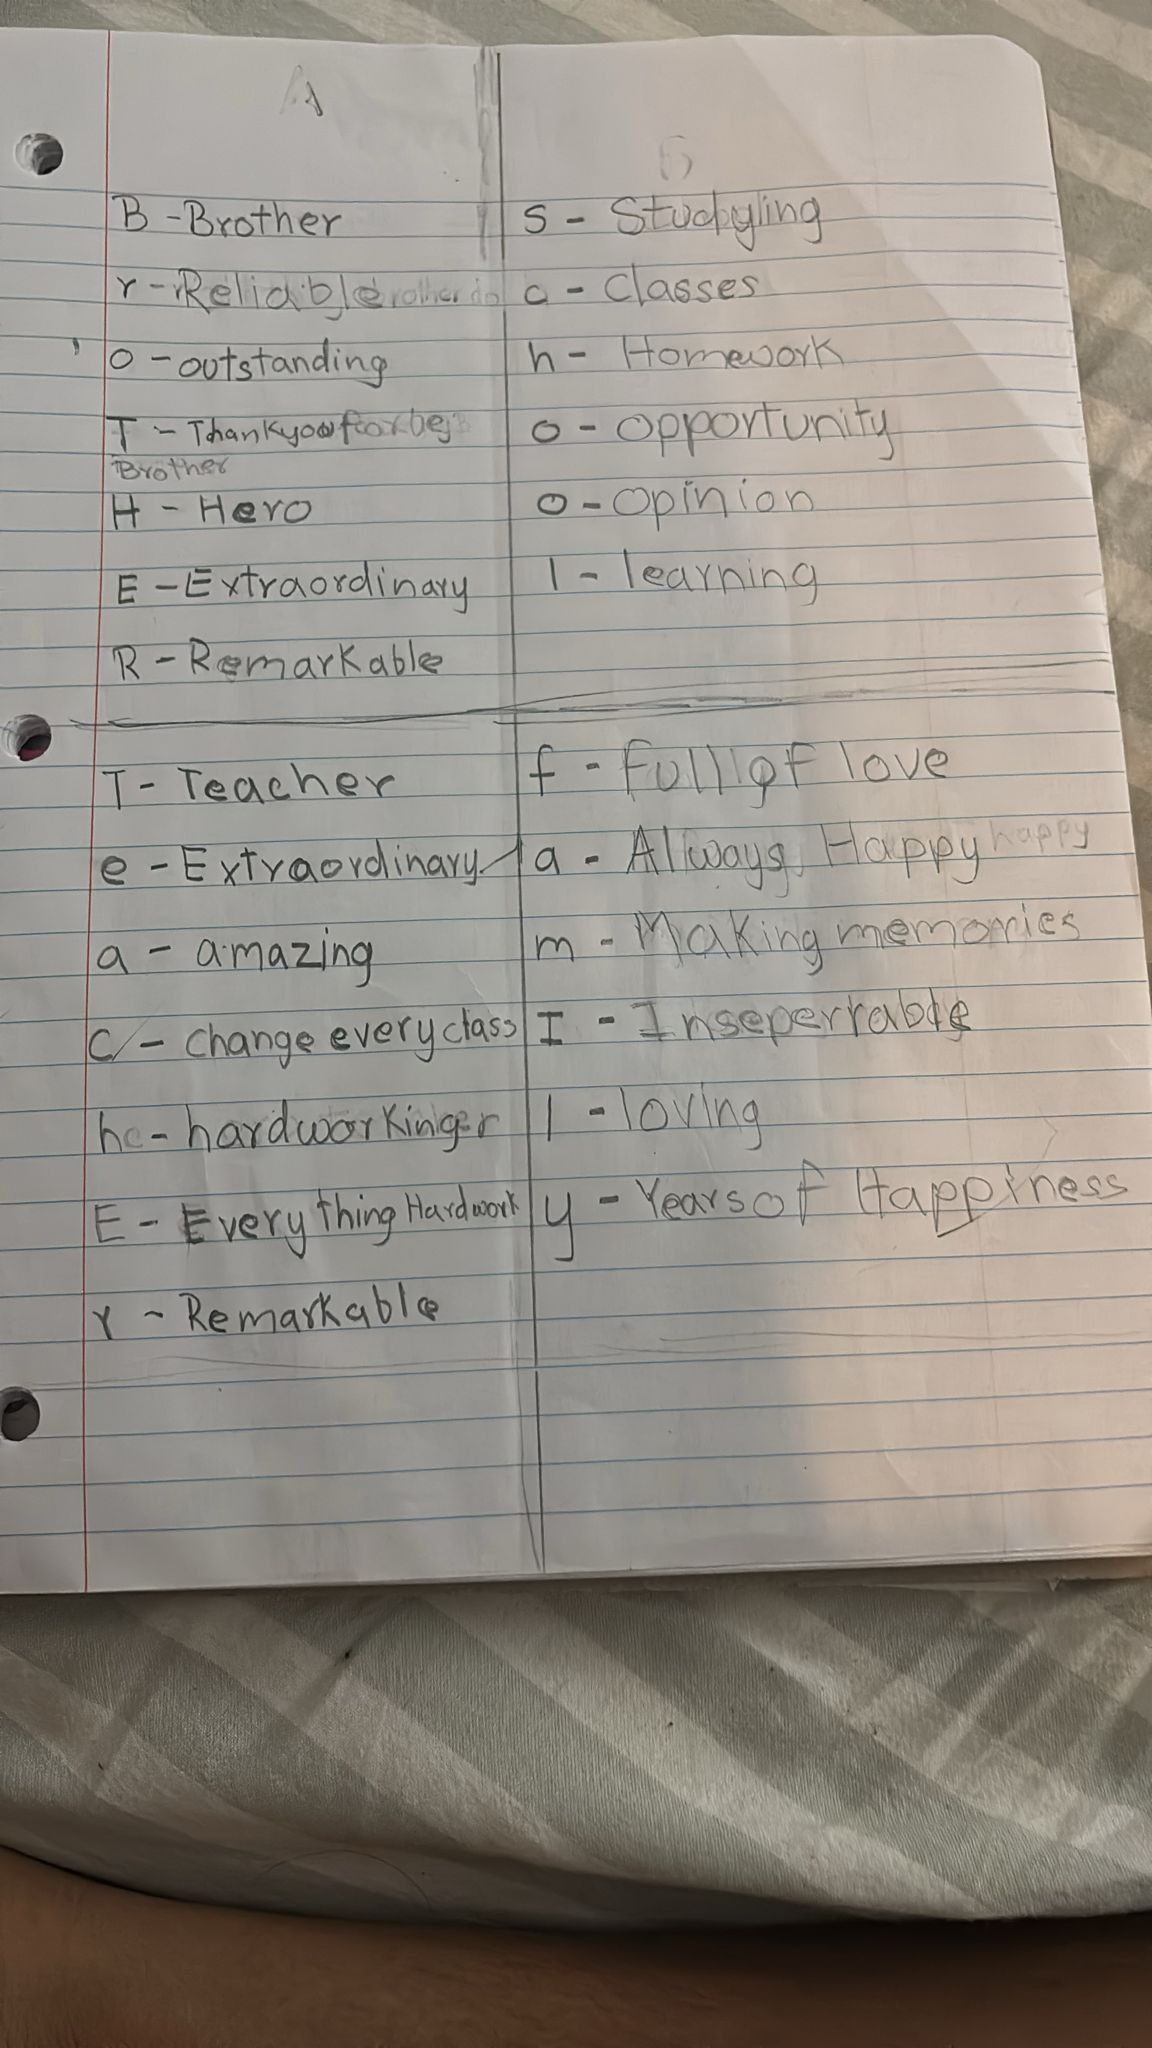 A
B - Brother
r - Reliable
o - outstanding
T - Thankyou for bej
Brother
H - Hero
E - Extraordinary
R - Remarkable
S - Studying
c - Classes
h - Homework
o - opportunity
o - opinion
l - learning
T - Teacher
e - Extraordinary
a - amazing
C - change every class
h - hardworking
E - Every thing Hardwork
r - Remarkable
f - Full of love
a - Always Happy happy
m - Making memories
I - Inseperrable
l - loving
y - Years of Happiness